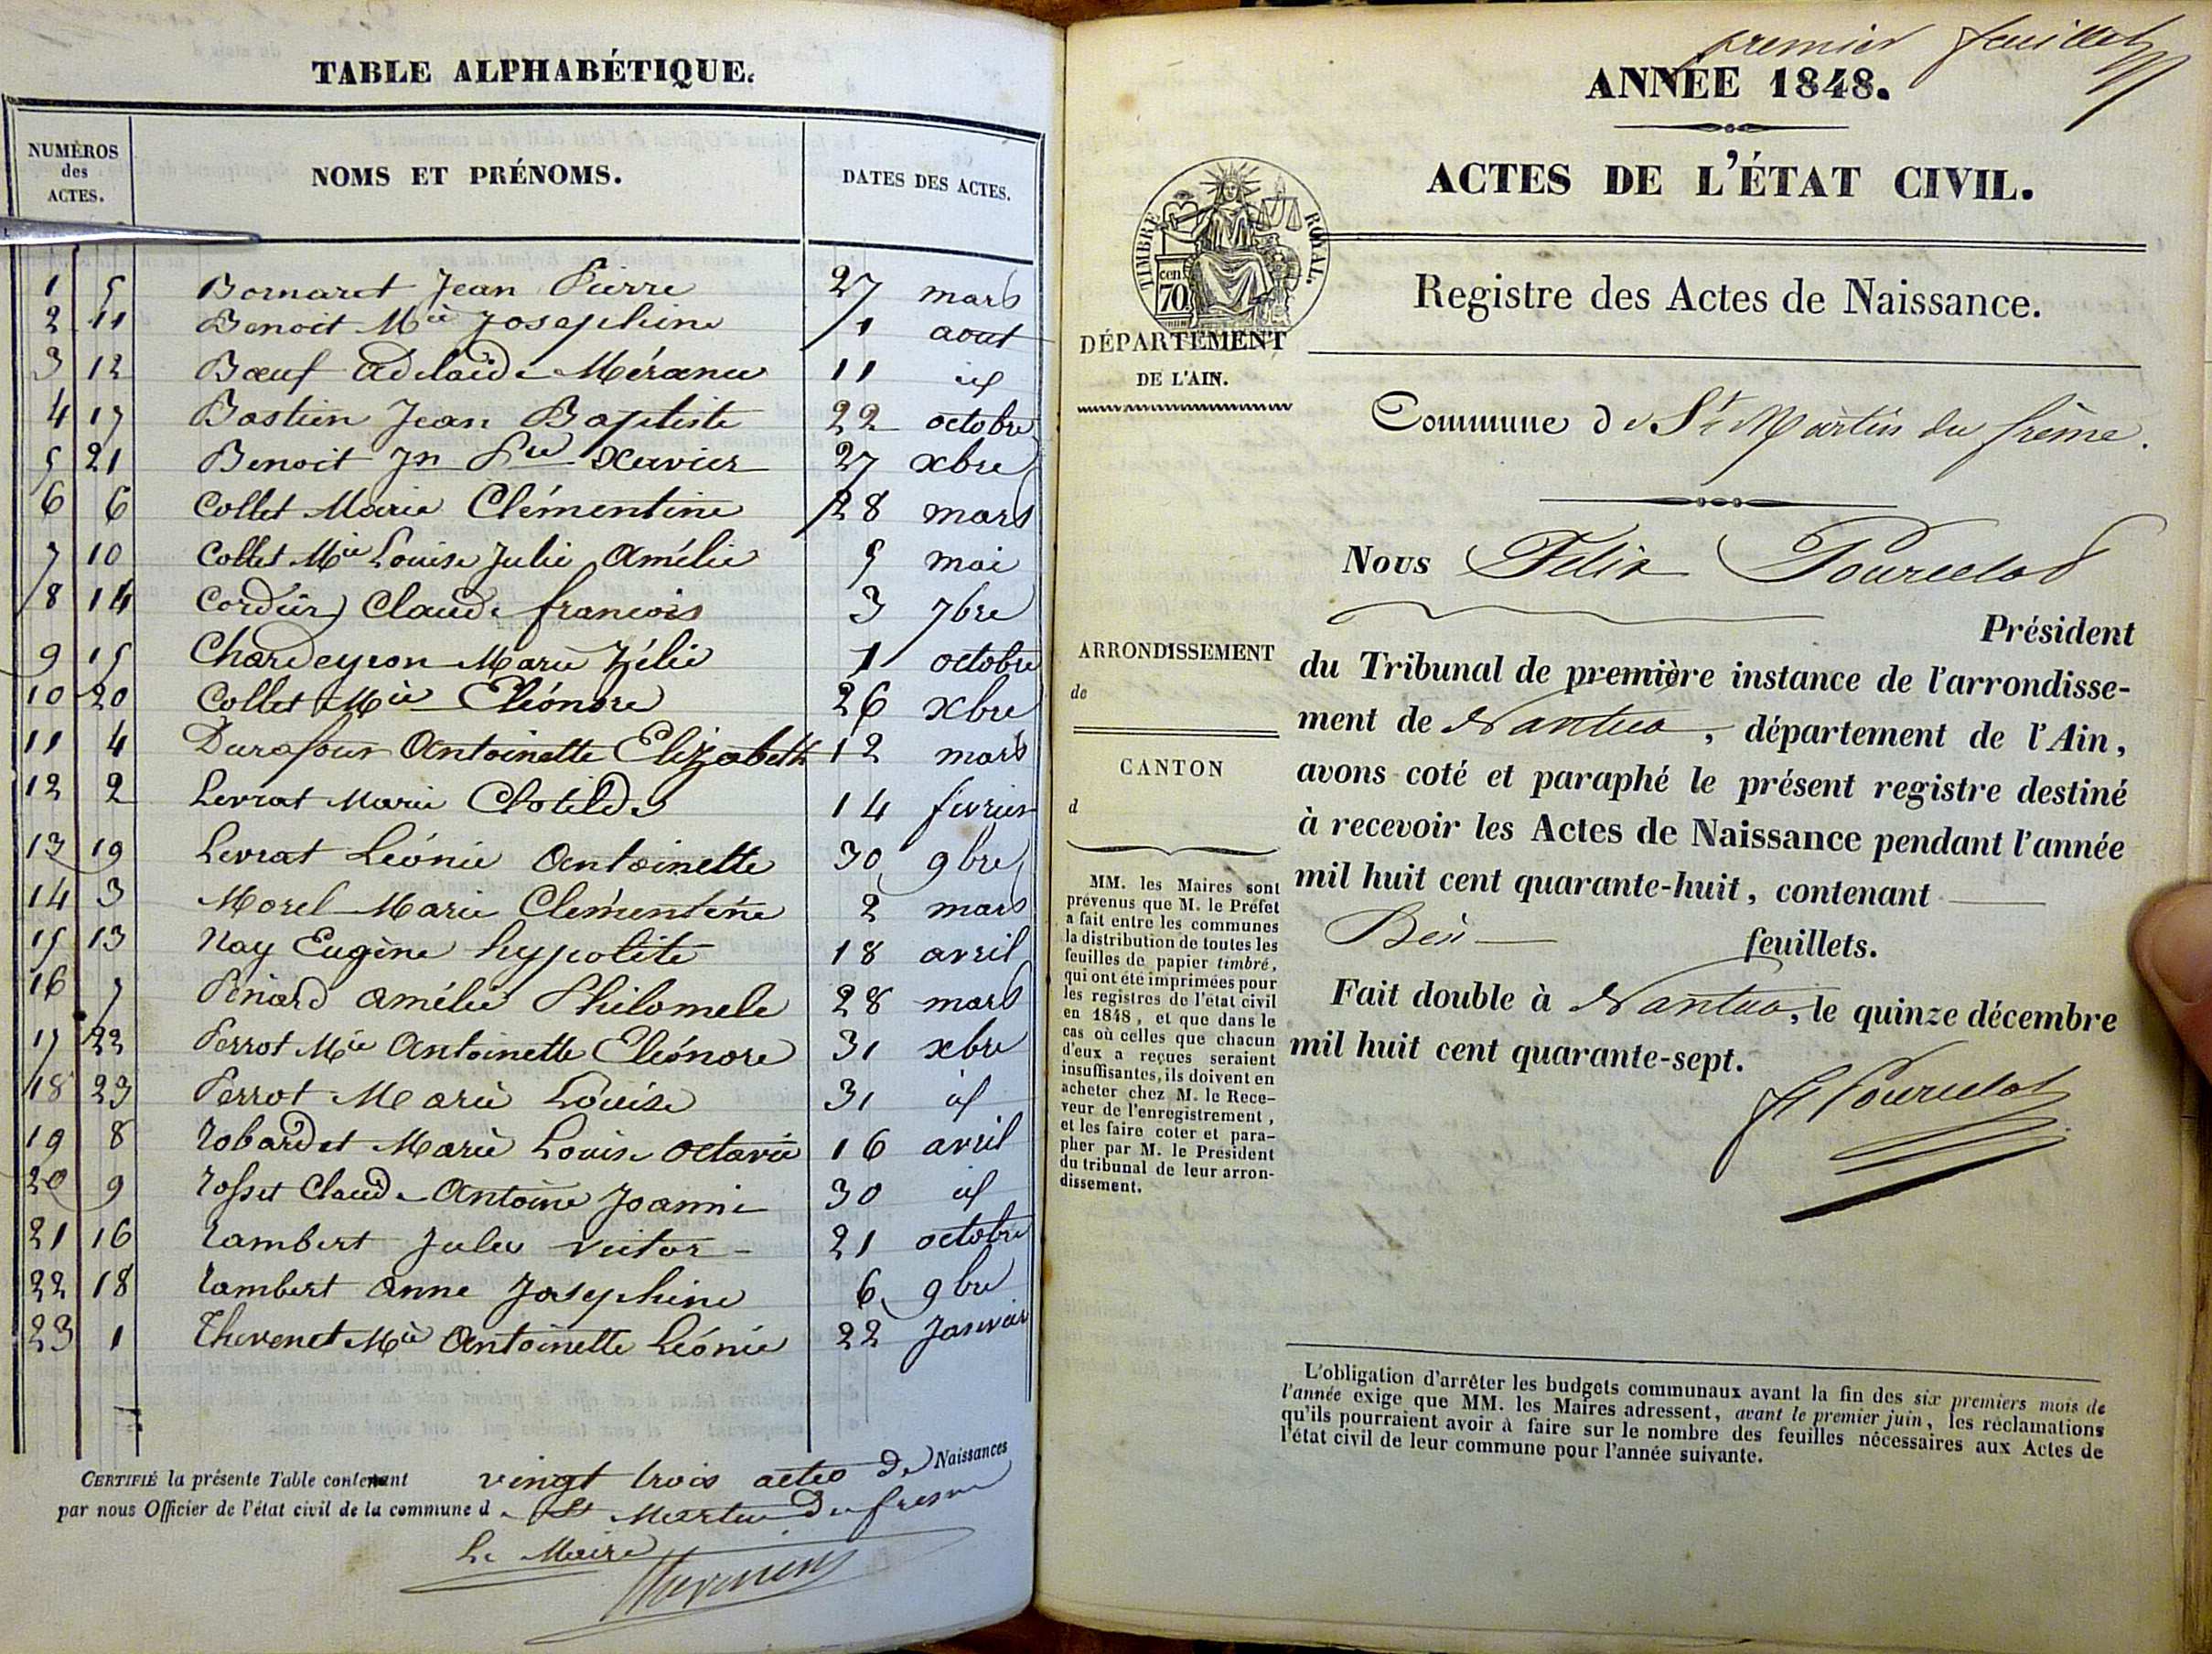 TABLE ALPHABÉTIQUE.
NUMÉROS des ACTES.
NOMS ET PRÉNOMS.
DATES DES ACTES.
1 5 Bornaret Jean Pierre 27 mars
2 11 Benoit Mie Josephine 1 aout
3 12 Bœuf Adelaïde Méranie 11 id
4 17 Bastien Jean Baptiste 22 octobre
5 21 Benoit Jn Pre Xavier 27 xbre
6 6 Collet Marie Clémentine 28 mars
7 10 Collet Mie Louise Julie Amélie 5 mai
8 14 Cordier Claude francois 3 7bre
9 15 Chardeyron Marie Zélie 1 octobre
10 20 Collet Mie Eléonore 26 xbre
11 4 Durafour Antoinette Elizabeth 12 mars
12 2 Levrat Marie Clotilde 14 fevrier
13 19 Levrat Léonie Antoinette 30 9bre
14 3 Morel Marie Clémentine 2 mars
15 13 Nay Eugène hypolite 18 avril
16 7 Pénard Amélie Philomele 28 mars
17 22 Perrot Mie Antoinette Eléonore 31 xbre
18 23 Perrot Marie Louise 31 id
19 8 Robardet Marie Louise Octavie 16 avril
20 9 Rosset Claude Antoine Joanni 30 id
21 16 Rambert Jules Victor 21 octobre
22 18 Rambert Anne Josephine 6 9bre
23 1 Thevenet Mie Antoinette Léonie 22 Janvier
CERTIFIÉ la présente Table contenant vingt trois actes de Naissances
par nous Officier de l'état civil de la commune de St Martin du fresne
Le Maire
premier feuillet
ANNÉE 1848.
ACTES DE L'ÉTAT CIVIL.
TIMBRE ROYAL.
cen 70
Registre des Actes de Naissance.
DÉPARTEMENT
DE L'AIN.
Commune de St Martin du frêne.
Nous Félix Pourcelot
Président
du Tribunal de première instance de l'arrondisse-
ment de Nantua, département de l'Ain,
avons coté et paraphé le présent registre destiné
à recevoir les Actes de Naissance pendant l'année
mil huit cent quarante-huit, contenant
feuillets.
Fait double à Nantua, le quinze décembre
mil huit cent quarante-sept.
F Pourcelot
ARRONDISSEMENT
de
CANTON
d
MM. les Maires sont
prévenus que M. le Préfet
a fait entre les communes
la distribution de toutes les
feuilles de papier timbré,
qui ont été imprimées pour
les registres de l'état civil
en 1848, et que dans le
cas où celles que chacun
d'eux a reçues seraient
insuffisantes, ils doivent en
acheter chez M. le Rece-
veur de l'enregistrement,
et les faire coter et para-
pher par M. le Président
du tribunal de leur arron-
dissement.
L'obligation d'arrêter les budgets communaux avant la fin des six premiers mois de
l'année exige que MM. les Maires adressent, avant le premier juin, les réclamations
qu'ils pourraient avoir à faire sur le nombre des feuilles nécessaires aux Actes de
l'état civil de leur commune pour l'année suivante.